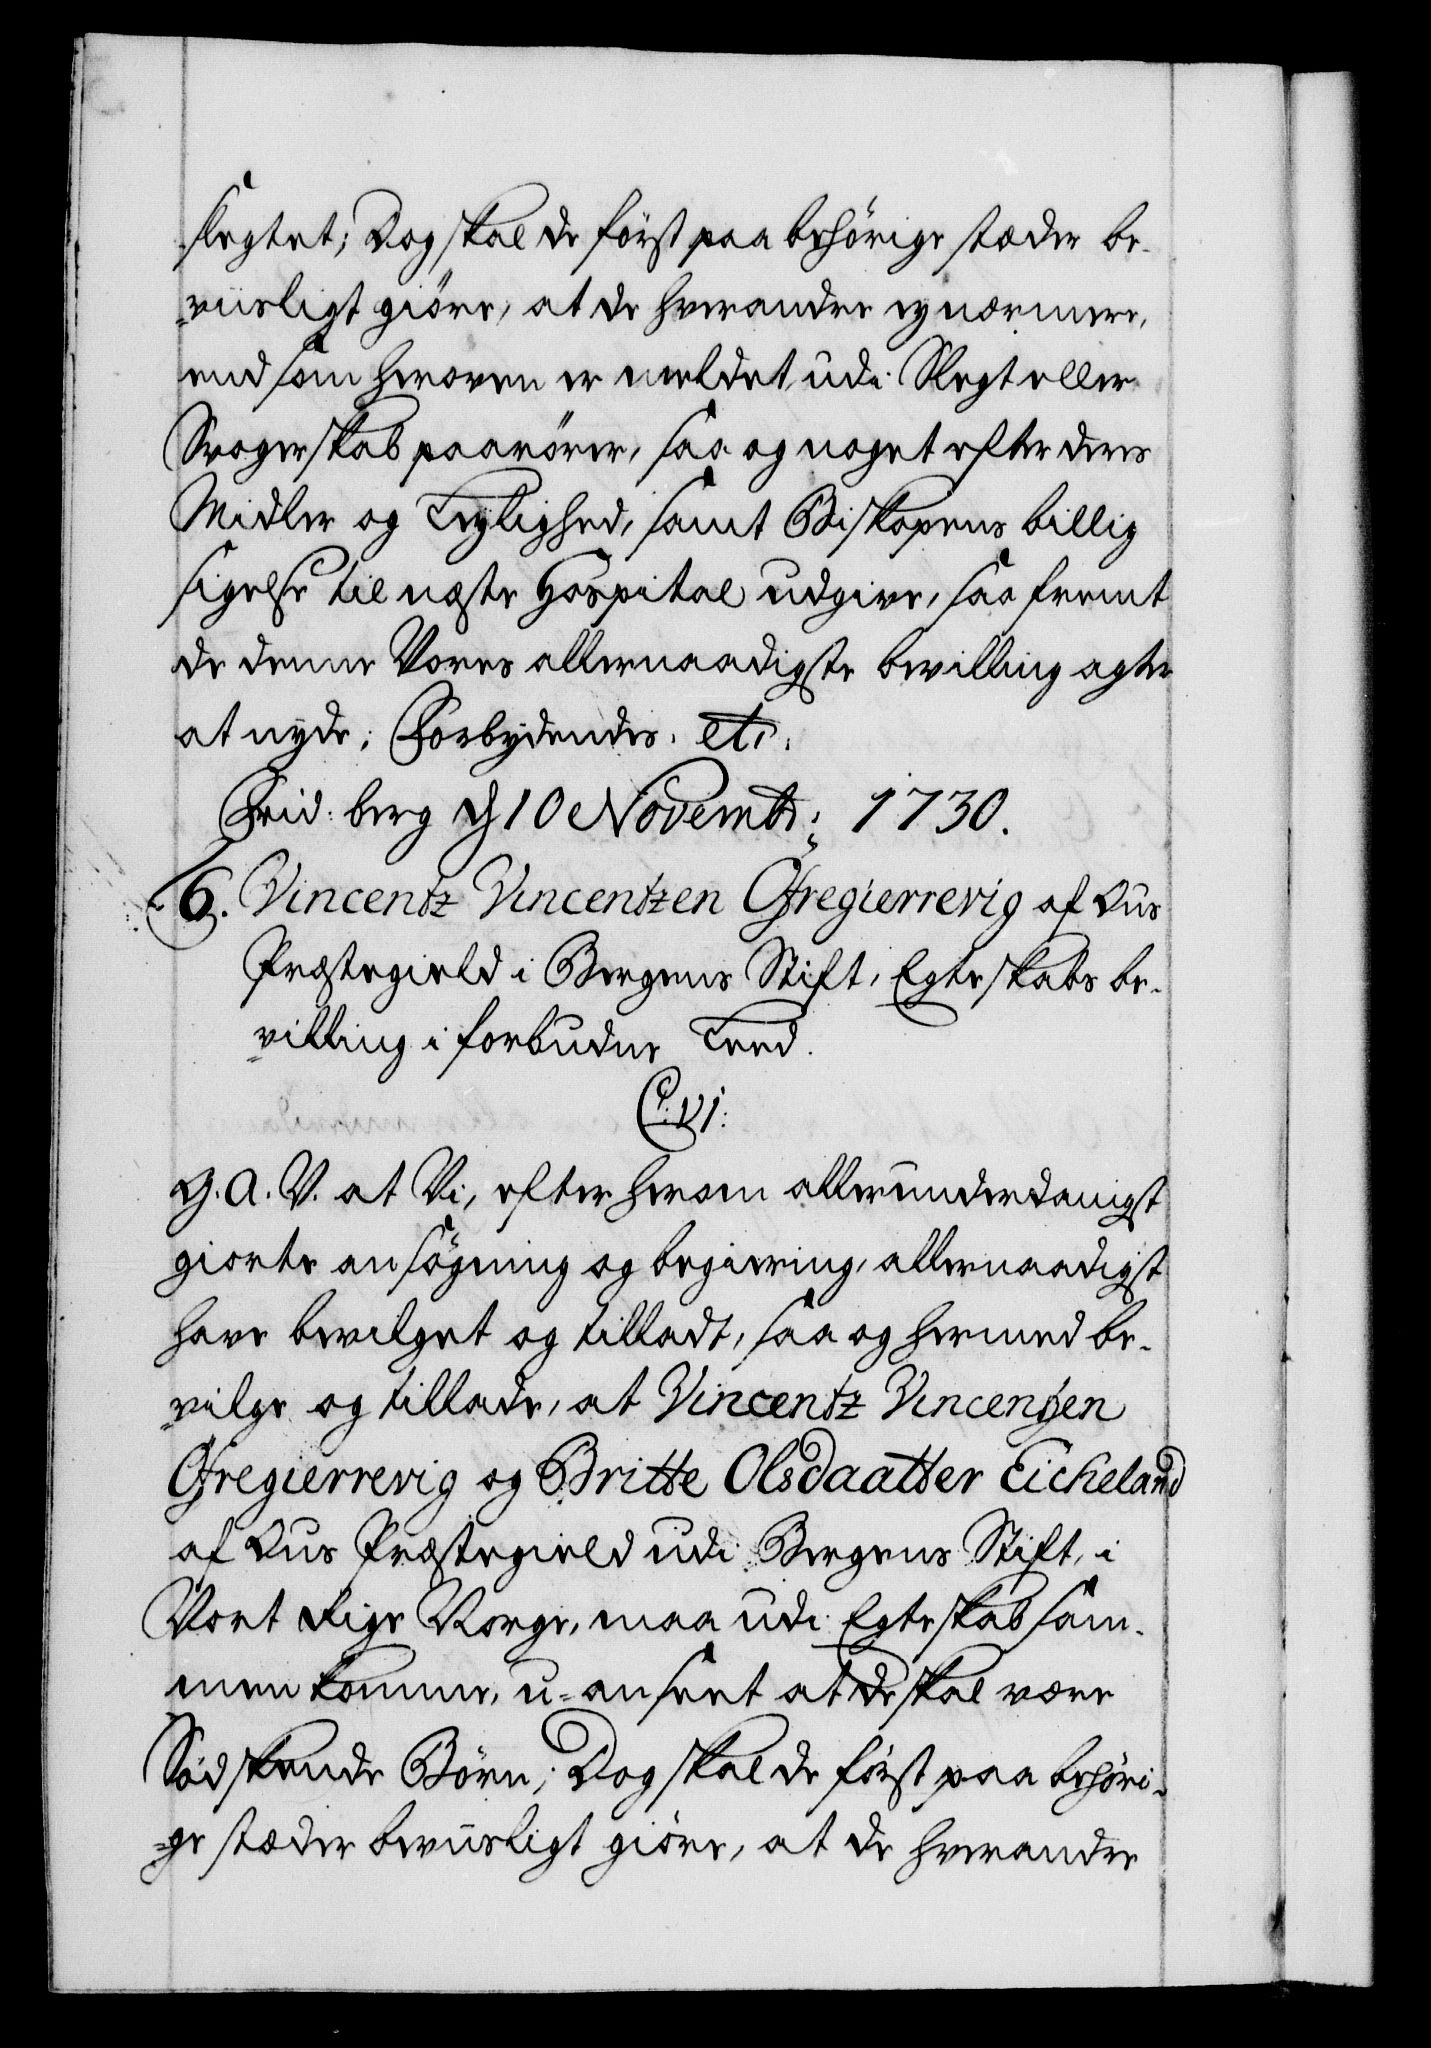 slegtet; Dog skal de først paa behörige stæder be-
viisligt giöre, at de hverandre ej nærmere,
end som heroven er meldet, udi Slegt eller
Svogerskab paarörer, saa og noget efter deres
Midler og Leylighed, samt Biskopens billig
sigelse til næste Hospital udgive, saafremt
de denne Vores allernaadigste bevilling agte
at nyde; Forbydendes. etc.
Frid: berg d 10 Novembr: 1730.
6. Vincentz Vincentzen Gregierrevig af Ous
Præstegield i Bergens Stift, Egteskabs be-
villing i forbudne Leed.
C: VI:
G. A. V. at Vi, efter herom allerunderdanigst
giorte ansögning og begiering, allernaadigst
have bevilget og tilladt, saa og hermed be-
vilge og tillade, at Vincentz Vincentzen
Gregierrevig og Britte Olsdaatter Eickeland
af Ous Præstegield udi Bergens Stift, i
Vort Rige Norge, maa udi Egteskab sam-
men komme, u-anseet at de skal være
Södskende Börn; Dog skal de först paa behöri-
ge stæder beviisligt giöre, at de hverandre